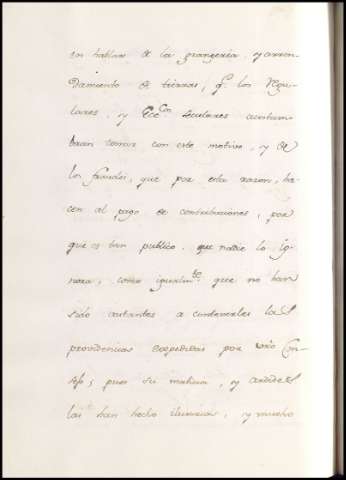 ros hablar de la grangeria, y arren-
damiento de tierras, q.e los Regu-
lares, y Ecc.cos Seculares acostum-
bran tomar con este motivo, y de
los fraudes, que por esta razon, ha-
cen al pago de contribuciones, por
que es tan publico, que nadie lo ig-
nora; como igualm.te que no han
sido bastantes a contenerles las
providencias expedidas por vro Con-
sejo; pues su malicia, y ardides
las han hecho ilusorias, y mucho